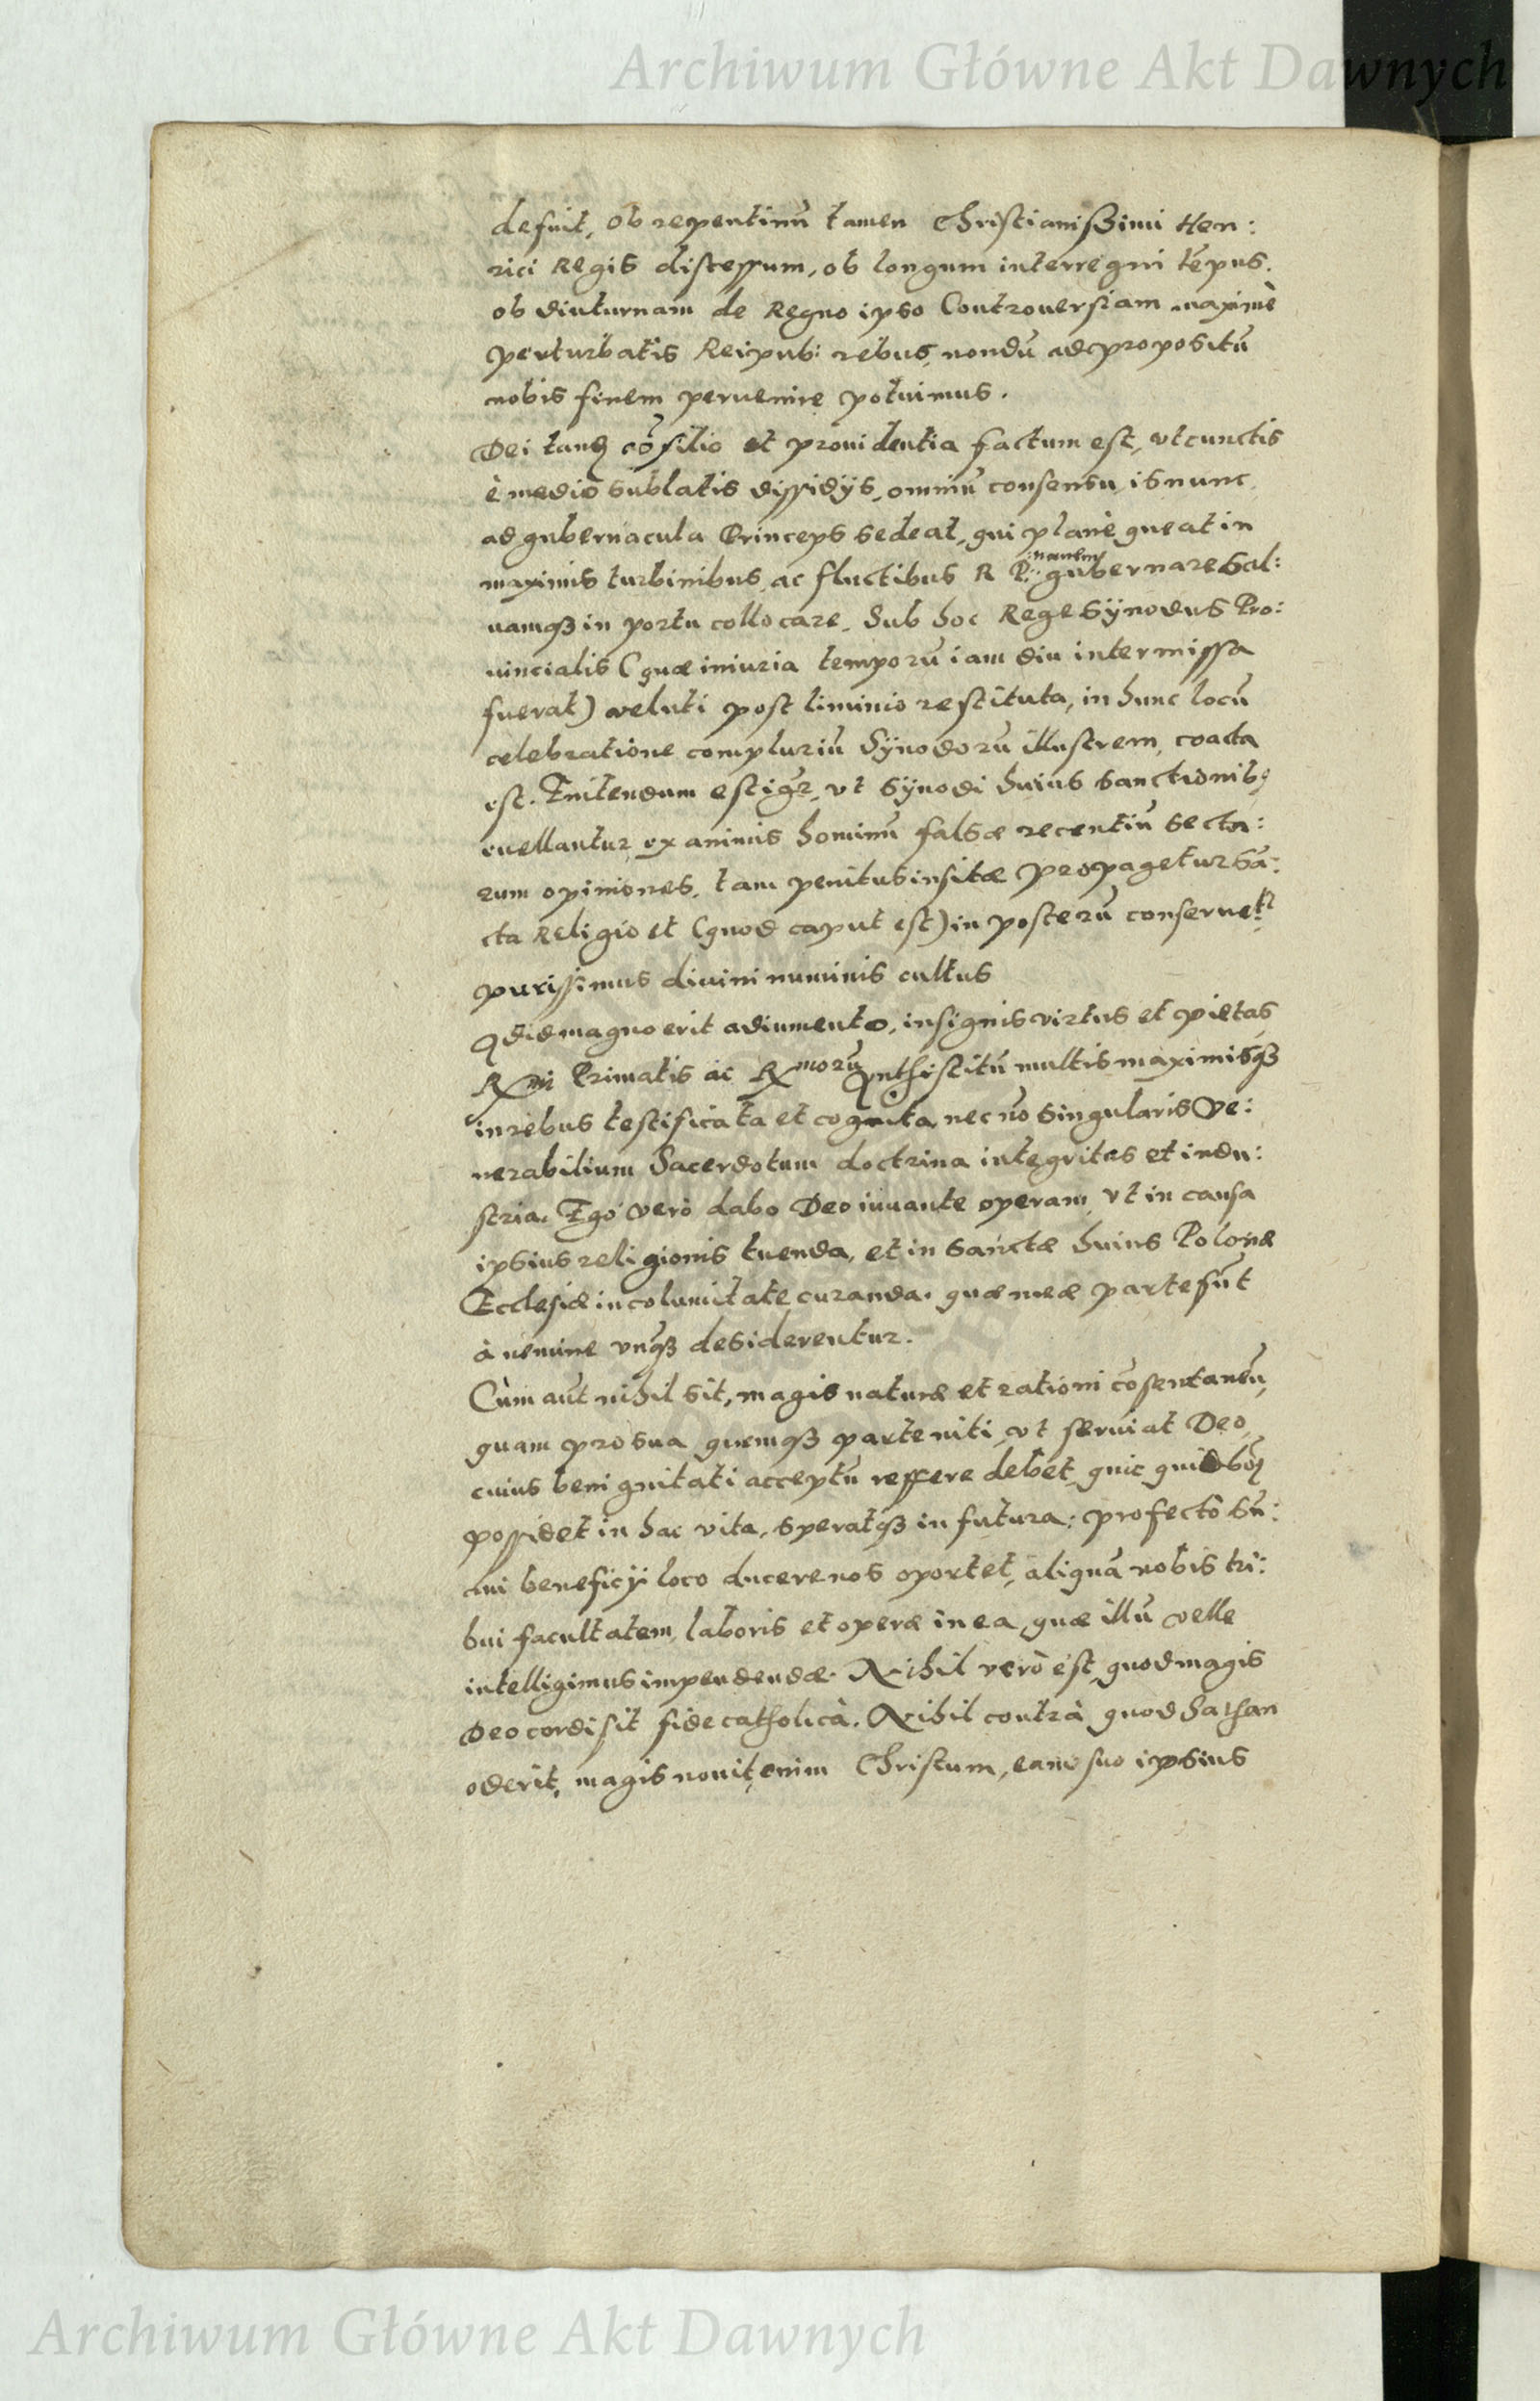 Archiwum Główne Akt Dawnych
defuit, ob repentinū tamen Christianißimi Hen:
rici Regis discessum, ob longum interregni tēpus,
ob diuturnam de Regno ipso Controuersiam maximè
perturbatis Reipub: rebus, nondū ad propositū
nobis finem peruenire potuimus.
Dei tandē cōsilio et prouidentia factum est, ut cunctis
è medio sublatis dissidijs, omniū consensu is nunc
ad gubernacula Princeps sedeat, qui planè queat in
nauem
maximis turbinibus ac fluctibus R P: gubernare sal:
uamqꝫ in portu collocare. Sub hoc Rege Synodus Pro:
uincialis (quæ iniuria temporū iam diu intermissa
fuerat) veluti post liminio restituta, in hunc locū
celebratione compluriū Synodorū illustrem, coacta
est. Enitendum est igr̄, vt Synodi huius sanctionibꝰ
euellantur ex animis hominū falsæ recentiū secta:
rum opiniones, tam penitus insitæ propagetur sā:
cta Religio et (quod caput est) in posterū conseruet̄
purissimus diuini numinis cultus
magno erit adiumento, insignis virtus et pietas
Rmi Primatis ac Rmorū Antistitū multis maximisqꝫ
in rebus testificata et cognita, nec nō singularis Ve:
nerabilium Sacerdotum doctrina integritas et indu:
stria. Ego verò dabo Deo iuuante operam, vt in causa
ipsius religionis tuenda, et in sanctæ huius Polonæ
Ecclesiæ incolumitate curanda, quæ meæ parte sūt
à nemine vnqꝫ desiderentur.
Cùm aūt nihil sit, magis naturæ et rationi cōsentaneū,
quam pro sua quemqꝫ parte niti, vt seruiat Deo,
cuius benignitati acceptū referre debet, quic quid
possidet in hac vita, speratqꝫ in futura: profectò sū:
mi beneficij loco ducere nos oportet, aliquā nobis tri:
bui facultatem, laboris et operæ in ea, quæ illū velle
intelligimus impendendæ. Nihil verò est, quod magis
Deo cordi sit fide catholicà. Nihil contrà quod Sathan
oderit, magis nouit, enim Christum, eam suo ipsius
Archiwum Główne Akt Dawnych